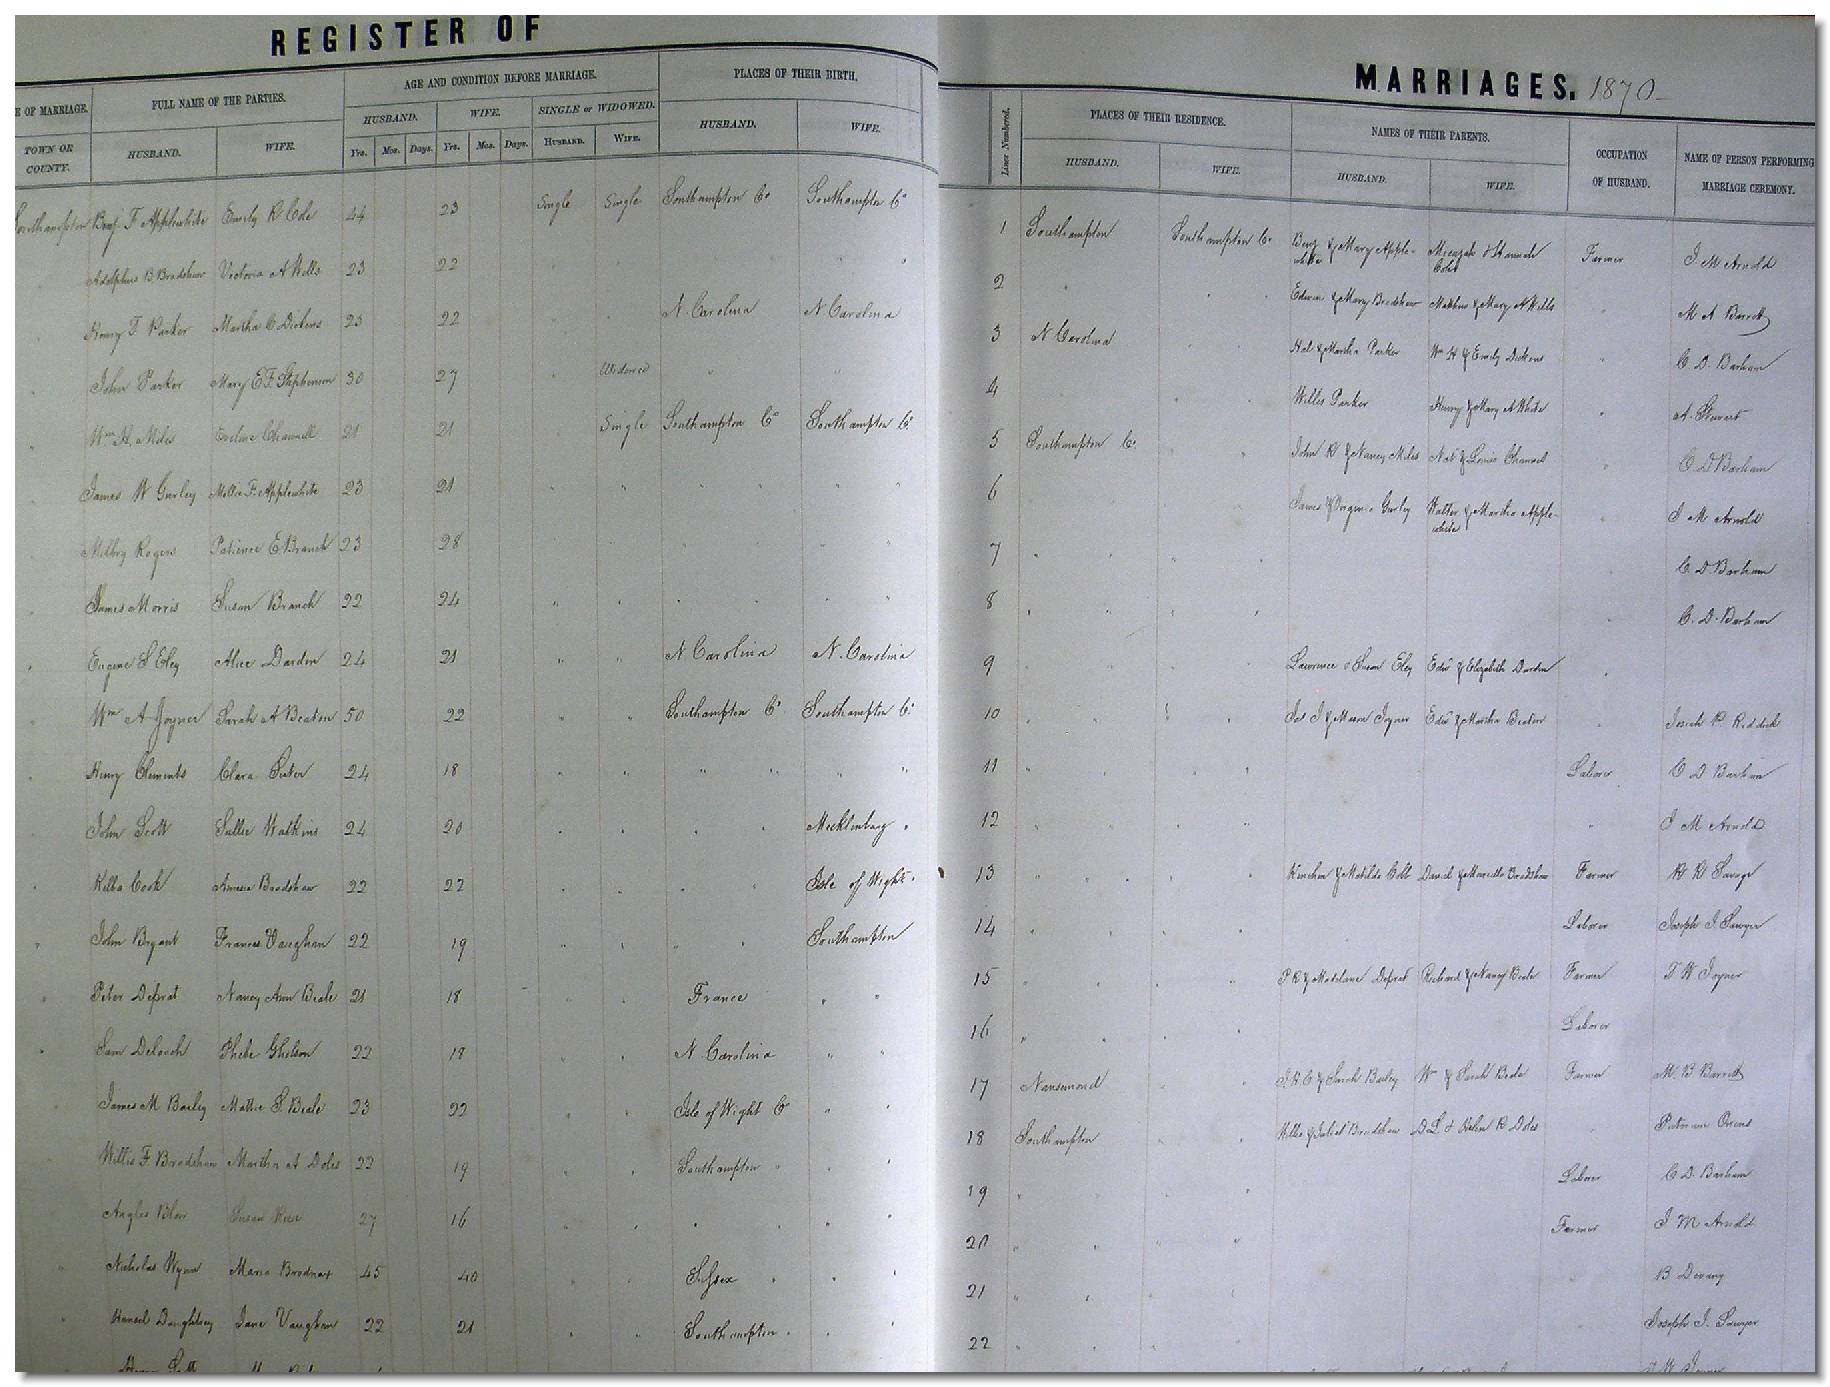 REGISTER OF
E OF MARRIAGE. FULL NAME OF THE PARTIES. AGE AND CONDITION BEFORE MARRIAGE. PLACES OF THEIR BIRTH.
HUSBAND. WIFE. SINGLE or WIDOWED.
TOWN OR COUNTY. HUSBAND. WIFE. Yrs. Mos. Days. Yrs. Mos. Days. HUSBAND. WIFE. HUSBAND. WIFE.
Southampton Benj F Applewhite Emily R Cole 44 23 Single Single Southampton Co Southampton Co
Adolphus B Bradshaw Victoria A Wills 23 22
Henry T Parker Martha C Dickens 25 22 N. Carolina N Carolina
John Parker Mary E F Stephenson 30 27 Widowed
Wm H. Miles 21 21 Single Southampton Co Southampton Co
James W Gurley Mollie F. Applewhite 23 21
Rogers Patience E Branch 23 28
James Morris Susan Branch 22 24
Eugene S Eley Alice Darden 24 21 N. Carolina N. Carolina
Wm A Joyner Sarah A Beaton 50 22 Southampton Co Southampton Co
Henry Clements Clara 24 18
John Scott Sallie Watkins 24 20 Mecklenburg
Cook Bradshaw 22 22 Isle of Wight
John Bryant Frances Vaughan 22 19 Southampton
Peter Deprat Nancy Ann Beale 21 18 France
Sam Deloach Phebe 22 18 N Carolina
James M Barley Mattie S. Beale 23 22 Isle of Wight Co
Willis F Bradshaw Martha A Doles 22 19 Southampton
Blow Susan 27 16
Nicholas Wynn Maria Brodnax 45 40 Sussex
Daughtrey Jane Vaughan 22 21 Southampton
MARRIAGES. 1870
Lines Numbered. PLACES OF THEIR RESIDENCE. NAMES OF THEIR PARENTS. OCCUPATION OF HUSBAND. NAME OF PERSON PERFORMING MARRIAGE CEREMONY.
HUSBAND. WIFE. HUSBAND. WIFE.
1 Southampton Southampton Co Benj & Mary Apple-white Micajah & Hannah Cole Farmer J. M Arnold
2 Edwin & Mary Bradshaw Matthew & Mary A Wills Barrett
3 N Carolina & Martha Parker Wm H & Emily Dickens C. D. Barham
4 Willis Parker Henry & Mary A White A. Stewart
5 Southampton Co. John R & Nancy Miles C D Barham
6 James & Virginia Gurley Walter & Martha Apple-white J M Arnold
7 C D Barham
8 C. D. Barham
9 Lawrence & Susan Eley Edw & Elizabeth Darden
10 Joyner Edw & Martha Beaton Josiah Riddick
11 Laborer C D Barham
12 J M Arnold
13 & Matilda David & Bradshaw Farmer Savage
14 Laborer Joseph J. Sawyer
15 & Madelane Deprat Richard & Nancy Beale Farmer T W Joyner
16 Laborer
17 Nansemond & Sarah Barley Wm & Sarah Beale Farmer M. B Barrett
18 Southampton Willis & Juliet Bradshaw D L & Helen R Doles Putnam Owens
19 Laborer C D. Barham
20 Farmer J M Arnold
21 B
22 Joseph J. Sawyer